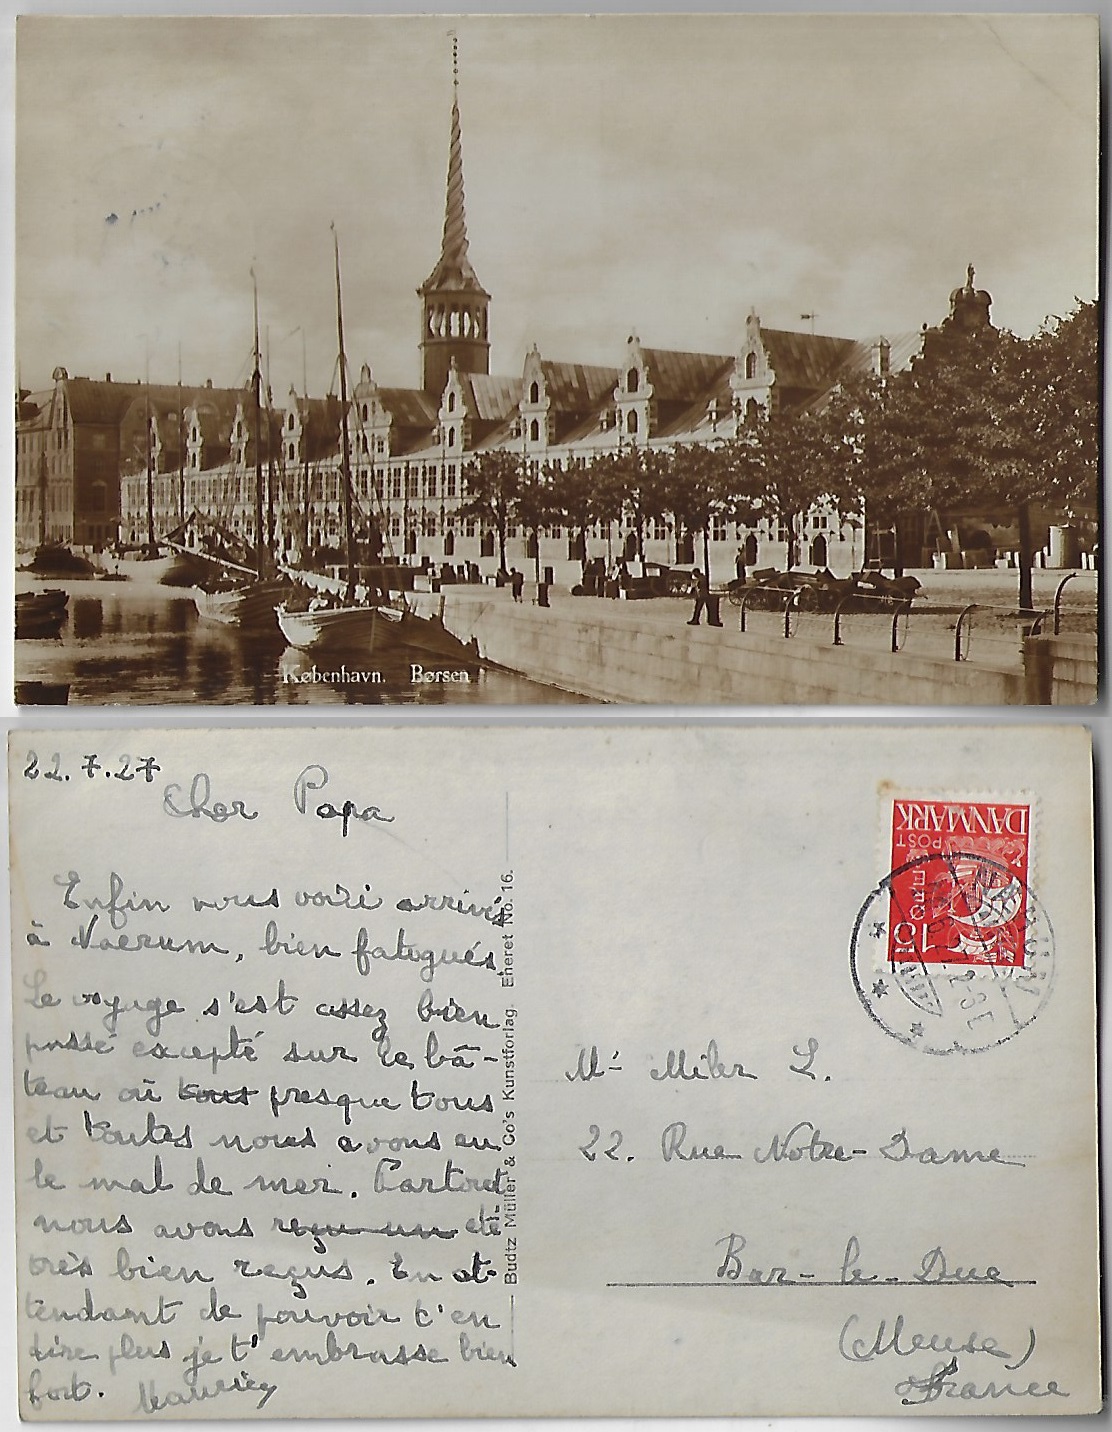 København. Børsen
22.7.27
Cher Papa
Enfin nous voici arrivés
à Naerum, bien fatigués.
Le voyage s'est assez bien
passé excepté sur le bâ-
teau où tous presque tous
et toutes nous avons eu
le mal de mer. Partout
nous avons reçu un été
très bien reçus. En at-
tendant de pouvoir t'en
dire plus je t'embrasse bien
fort.
Budtz Müller & Co's Kunstforlag. Eneret No. 16.
DANMARK
POST
15
Mr Miler L.
22. Rue Notre-Dame
Bar-le-Duc
(Meuse)
France